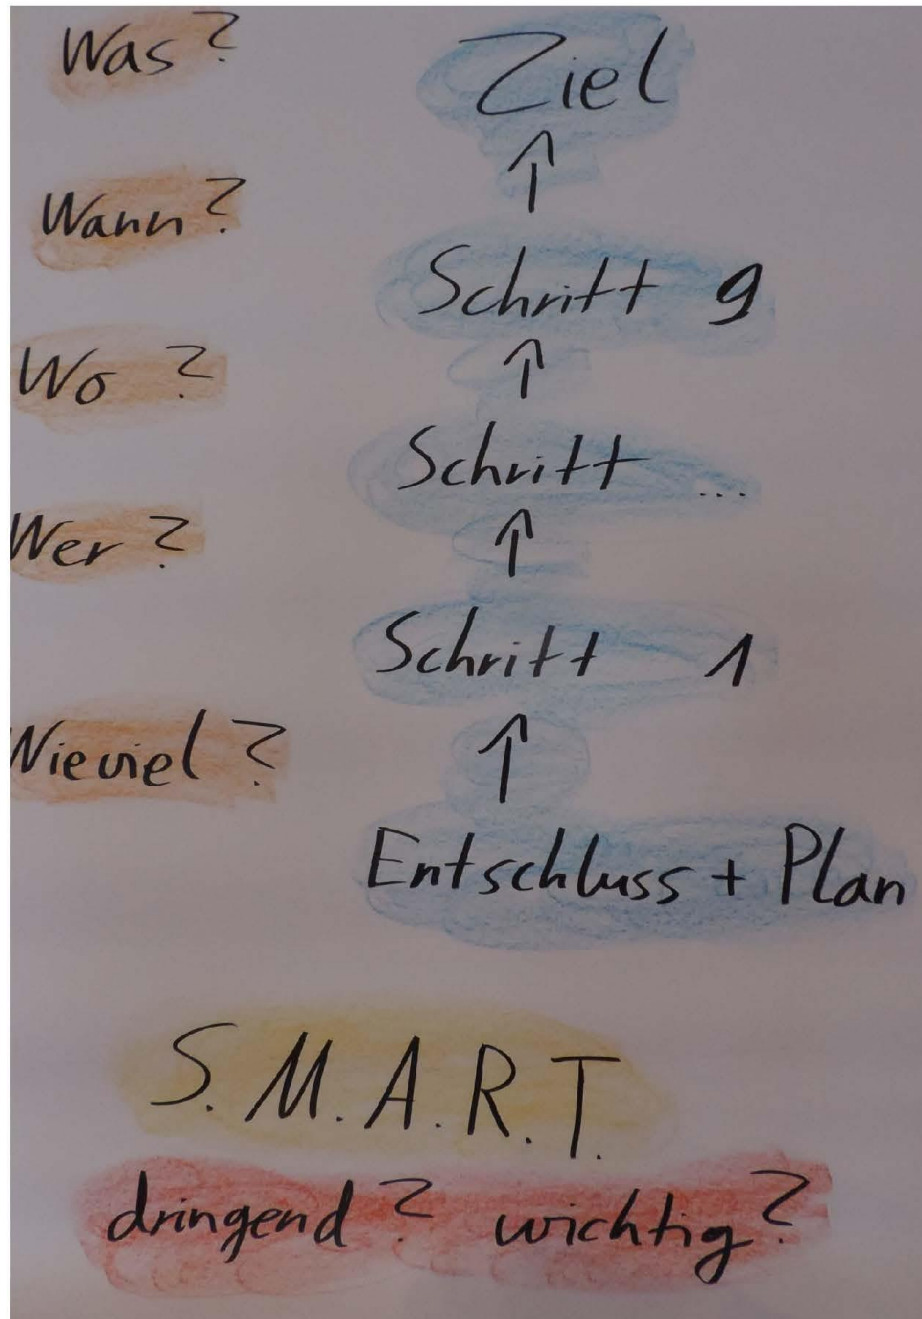 Was?
Wann?
Wo?
Wer?
Wieviel?
Ziel
↑
Schritt 9
↑
Schritt ...
↑
Schritt 1
↑
Entschluss + Plan
S.M.A.R.T.
dringend? wichtig?